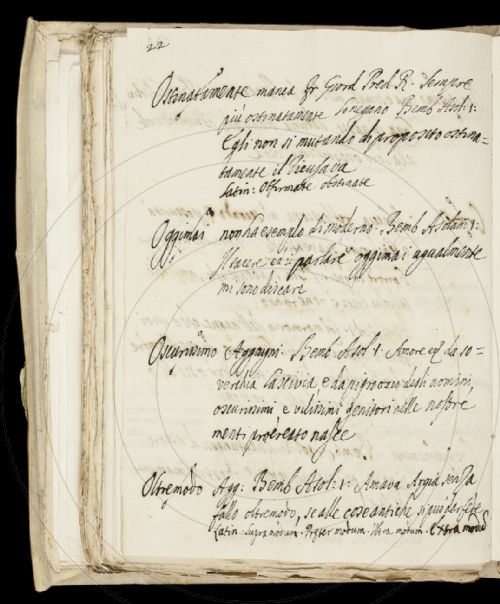 22
Ostinatamente manca Fr Giord Pred. R. Sempre
più ostinatamente si negano Bemb. Asol: 1:
Egli non si mutando di proposito ostina=
tamente il ricusava
Latin: Offirmate obstinate
Oggimai non ha esempio di moderno. Bemb Asolan: 1:
Il tacere e il parlare oggimai ugualmente
mi sono discare
Oscurissimo Aggiugni. Bemb Asol. 1. Amore da so=
verchia lascivia e da pigro ozio degli uomini,
oscurissimi e vilissimi genitori nelle nostre
menti procreato nasce
Oltremodo Agg: Bemb Asol: 1: Amava Argia senza
fallo oltremodo, se alle cose antiche si può dar fede
Latin Supra modum. Præter modum ultra modum. Extra modum